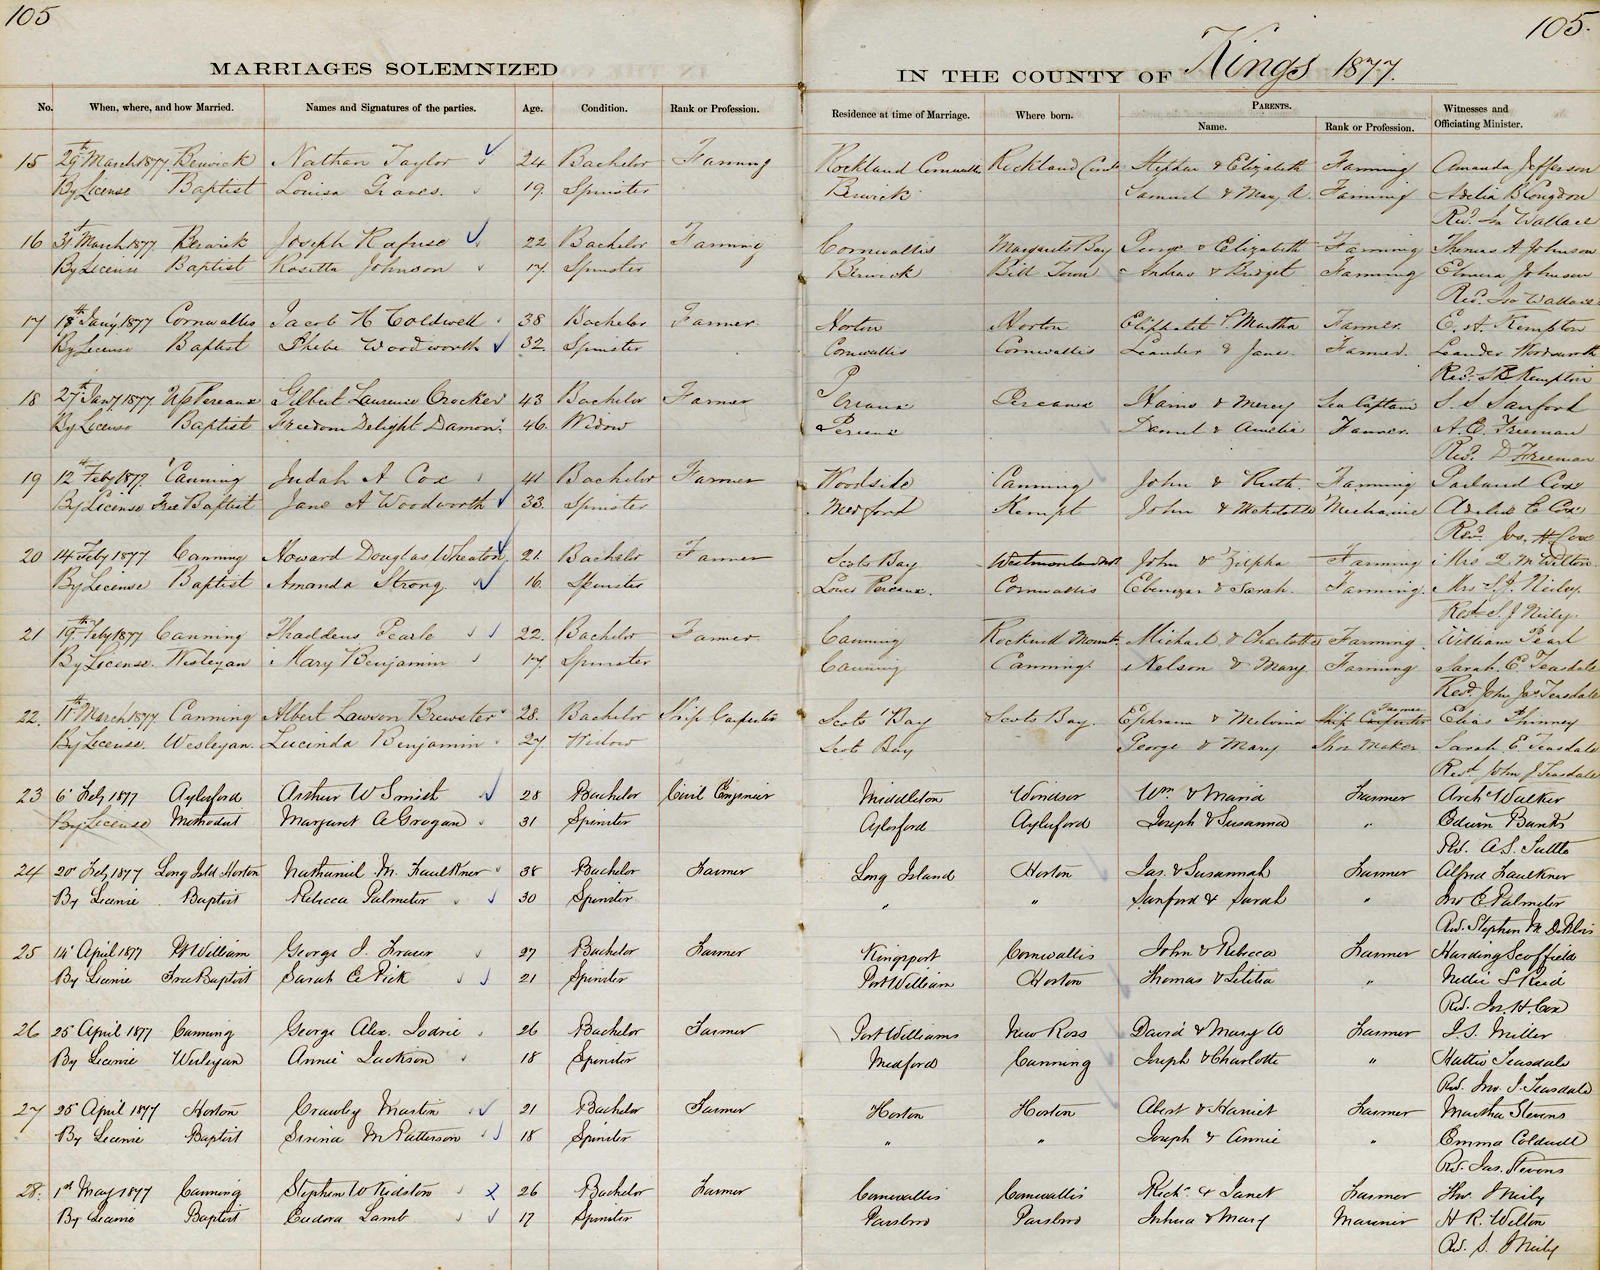 105
105.
MARRIAGES SOLEMNIZED
IN THE COUNTY OF Kings 1877.
No. When, where, and how Married. Names and Signatures of the parties. Age. Condition. Rank or Profession. Residence at time of Marriage. Where born. PARENTS. Name. Rank or Profession. Witnesses and Officiating Minister.
15 29th March 1877. Berwick Nathan Taylor 24 Bachelor Farming Rockland Cornwallis Rockland Stephen & Elizabeth Farming Amanda Jefferson
By License Baptist Louisa Graves. 19. Spinster Berwick Samuel & Mary A. Farming Adelia B Congdon
Revd. Wallace
16 31st March 1877 Berwick Joseph Rafuse 22 Bachelor Farming Cornwallis Margarets Bay George & Elizabeth Farming Thomas A Johnson
By License Baptist Rosetta Johnson 17 Spinster Berwick Bill Town Andrew & Bridget Farming Elmira Johnson
Revd. Wallace
17 18th Jany 1877 Cornwallis Jacob H Coldwell 38 Bachelor Farmer. Horton Horton Eliphalet & Martha Farmer. E. A. Kempton
By License Baptist Phebe Woodworth 32. Spinster Cornwallis Cornwallis Leander & Jane. Farmer. Leander Woodworth
Revd. Kempton
18 27th Jany 1877. Up Pereaux Gilbert Laurence Crocker 43 Bachelor Farmer Pereaux Pereaux & Mercy Sea Captain S. S Sanford
By License Baptist Freedom Delight Damon. 46. Widow Pereaux Daniel & Amelia Farmer. A. E. Freeman
Revd. D Freeman
19 12th Feby 1877. Canning Judah A Cox 41 Bachelor Farmer Woodside Canning John & Ruth. Farming Garland Cox
By License Free Baptist Jane A Woodworth 33. Spinster Medford Kempt John & Mehitable Mechanic C Cox
Revd. Jos. H Cox
20 14 Feby 1877 Canning Howard Douglas Wheaton 21. Bachelor Farmer Scots Bay John & Zilpha Farming Mrs. M Welton.
By License Baptist Amanda Strong 16. Spinster Lower Pereaux. Cornwallis Ebenezer & Sarah. Farming. Mrs. S. J. Neiley.
Revd. S J Neily.
21 19th Feby 1877 Canning Thaddeus Pearle 22. Bachelor Farmer. Canning Michael & Charlotte Farming. William Pearl
By License. Wesleyan Mary Benjamin 17 Spinster Canning Canning. Nelson & Mary. Farming Sarah E. Teasdale
Revd. John Jos Teasdale
22. 11th March 1877. Canning Albert Lawson Brewster 28. Bachelor Ship Carpenter Scots Bay Scots Bay. Ephraim & Melvina Ship Carpenter Farmer Elias Thinney
By License. Wesleyan. Lucinda Benjamin 27 Widow Scots Bay George & Mary. Shoe Maker Sarah E. Teasdale
Revd John J Teasdale
23 6' Feby 1877 Aylesford Arthur W Smith 28 Bachelor Civil Engineer Middleton Windsor Wm & Maria Farmer Archd Walker
By License Methodist Margaret A Grogan 31 Spinster Aylesford Aylesford Joseph & Susanna " Edwin Banks
Rev. A. S. Tuttle
24 20' Feby 1877 Long Isld Horton Nathaniel M. Faulkner 38 Bachelor Farmer Long Island Horton Jas. & Susannah Farmer Alfred Faulkner
By License Baptist Rebecca Palmeter 30 Spinster " " Sanford & Sarah " Jno E. Palmeter
Rev. Stephen
25 14' April 1877 Pt William George J. Fraser 27 Bachelor Farmer Kingsport Cornwallis John & Rebecca Farmer Harding Scoffield
By License Free Baptist Sarah E Rick 21 Spinster Port William Horton Thomas & Letitia " Nellie S Reid
Rev. Jos. H. Cox
26 25 April 1877 Canning George Alex. Jodrie 26 Bachelor Farmer Port Williams New Ross David & Mary A Farmer J. S. Miller
By License Wesleyan Annie Jackson 18 Spinster Medford Canning Joseph & Charlotte " Hattie Teasdale
Rev. Jno. J. Teasdale
27 25 April 1877 Horton Crawley Martin 21 Bachelor Farmer Horton Horton Albert & Harriet Farmer Martha Stevens
By License Baptist Serena M Patterson 18 Spinster " " Joseph & Annie " Emma Coldwell
Rev. Jas. Stevens
28. 1st May 1877 Canning Stephen W Ridston 26 Bachelor Farmer Cornwallis Cornwallis Richd. & Janet Farmer Neily
By License Baptist Eudora Lamb 17 Spinster Parsboro Parsboro Joshua & Mary Mariner H R. Welton
Rev. S. J Neily